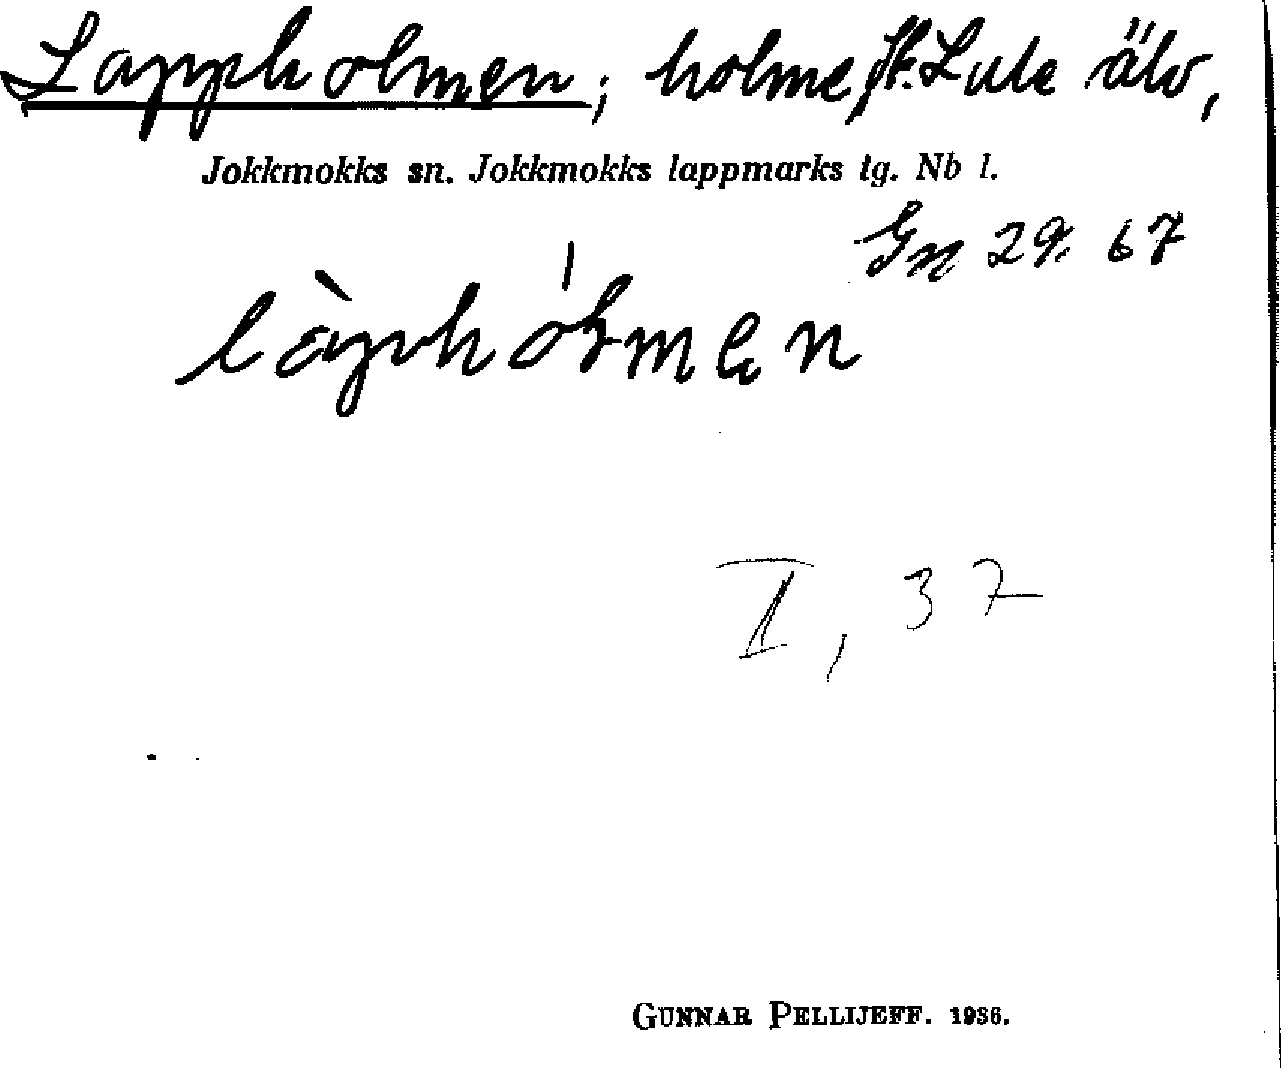 Lappholmen; holme St. Lule älv,
Jokkmokks sn. Jokkmokks lappmarks tg. Nb l.
Gn 29: 67
làphólmen
I, 37
GUNNAR PELLIJEFF. 1936.